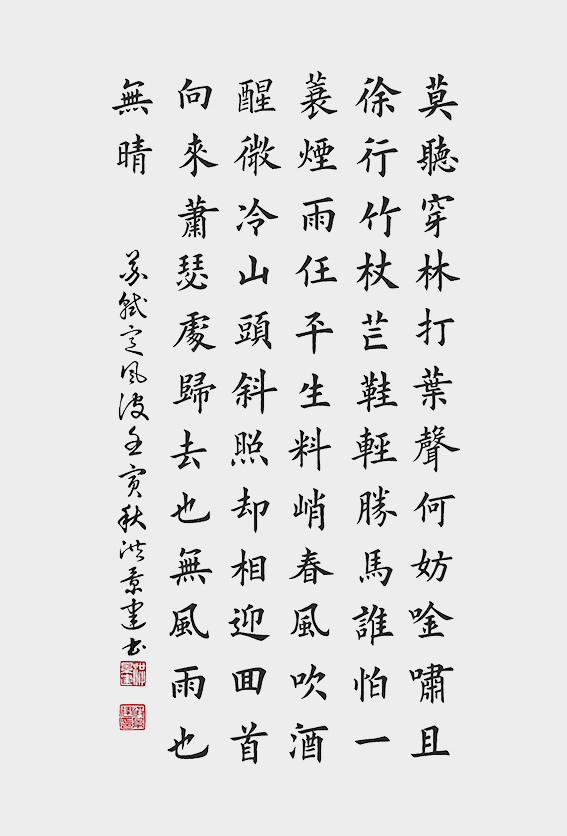 莫聽穿林打葉聲何妨唫嘯且
徐行竹杖芒鞋輕勝馬誰怕一
蓑煙雨任平生料峭春風吹酒
醒微冷山頭斜照却相迎囬首
向來蕭瑟處歸去也無風雨也
無晴
蘇軾定風波壬寅秋洪景建書